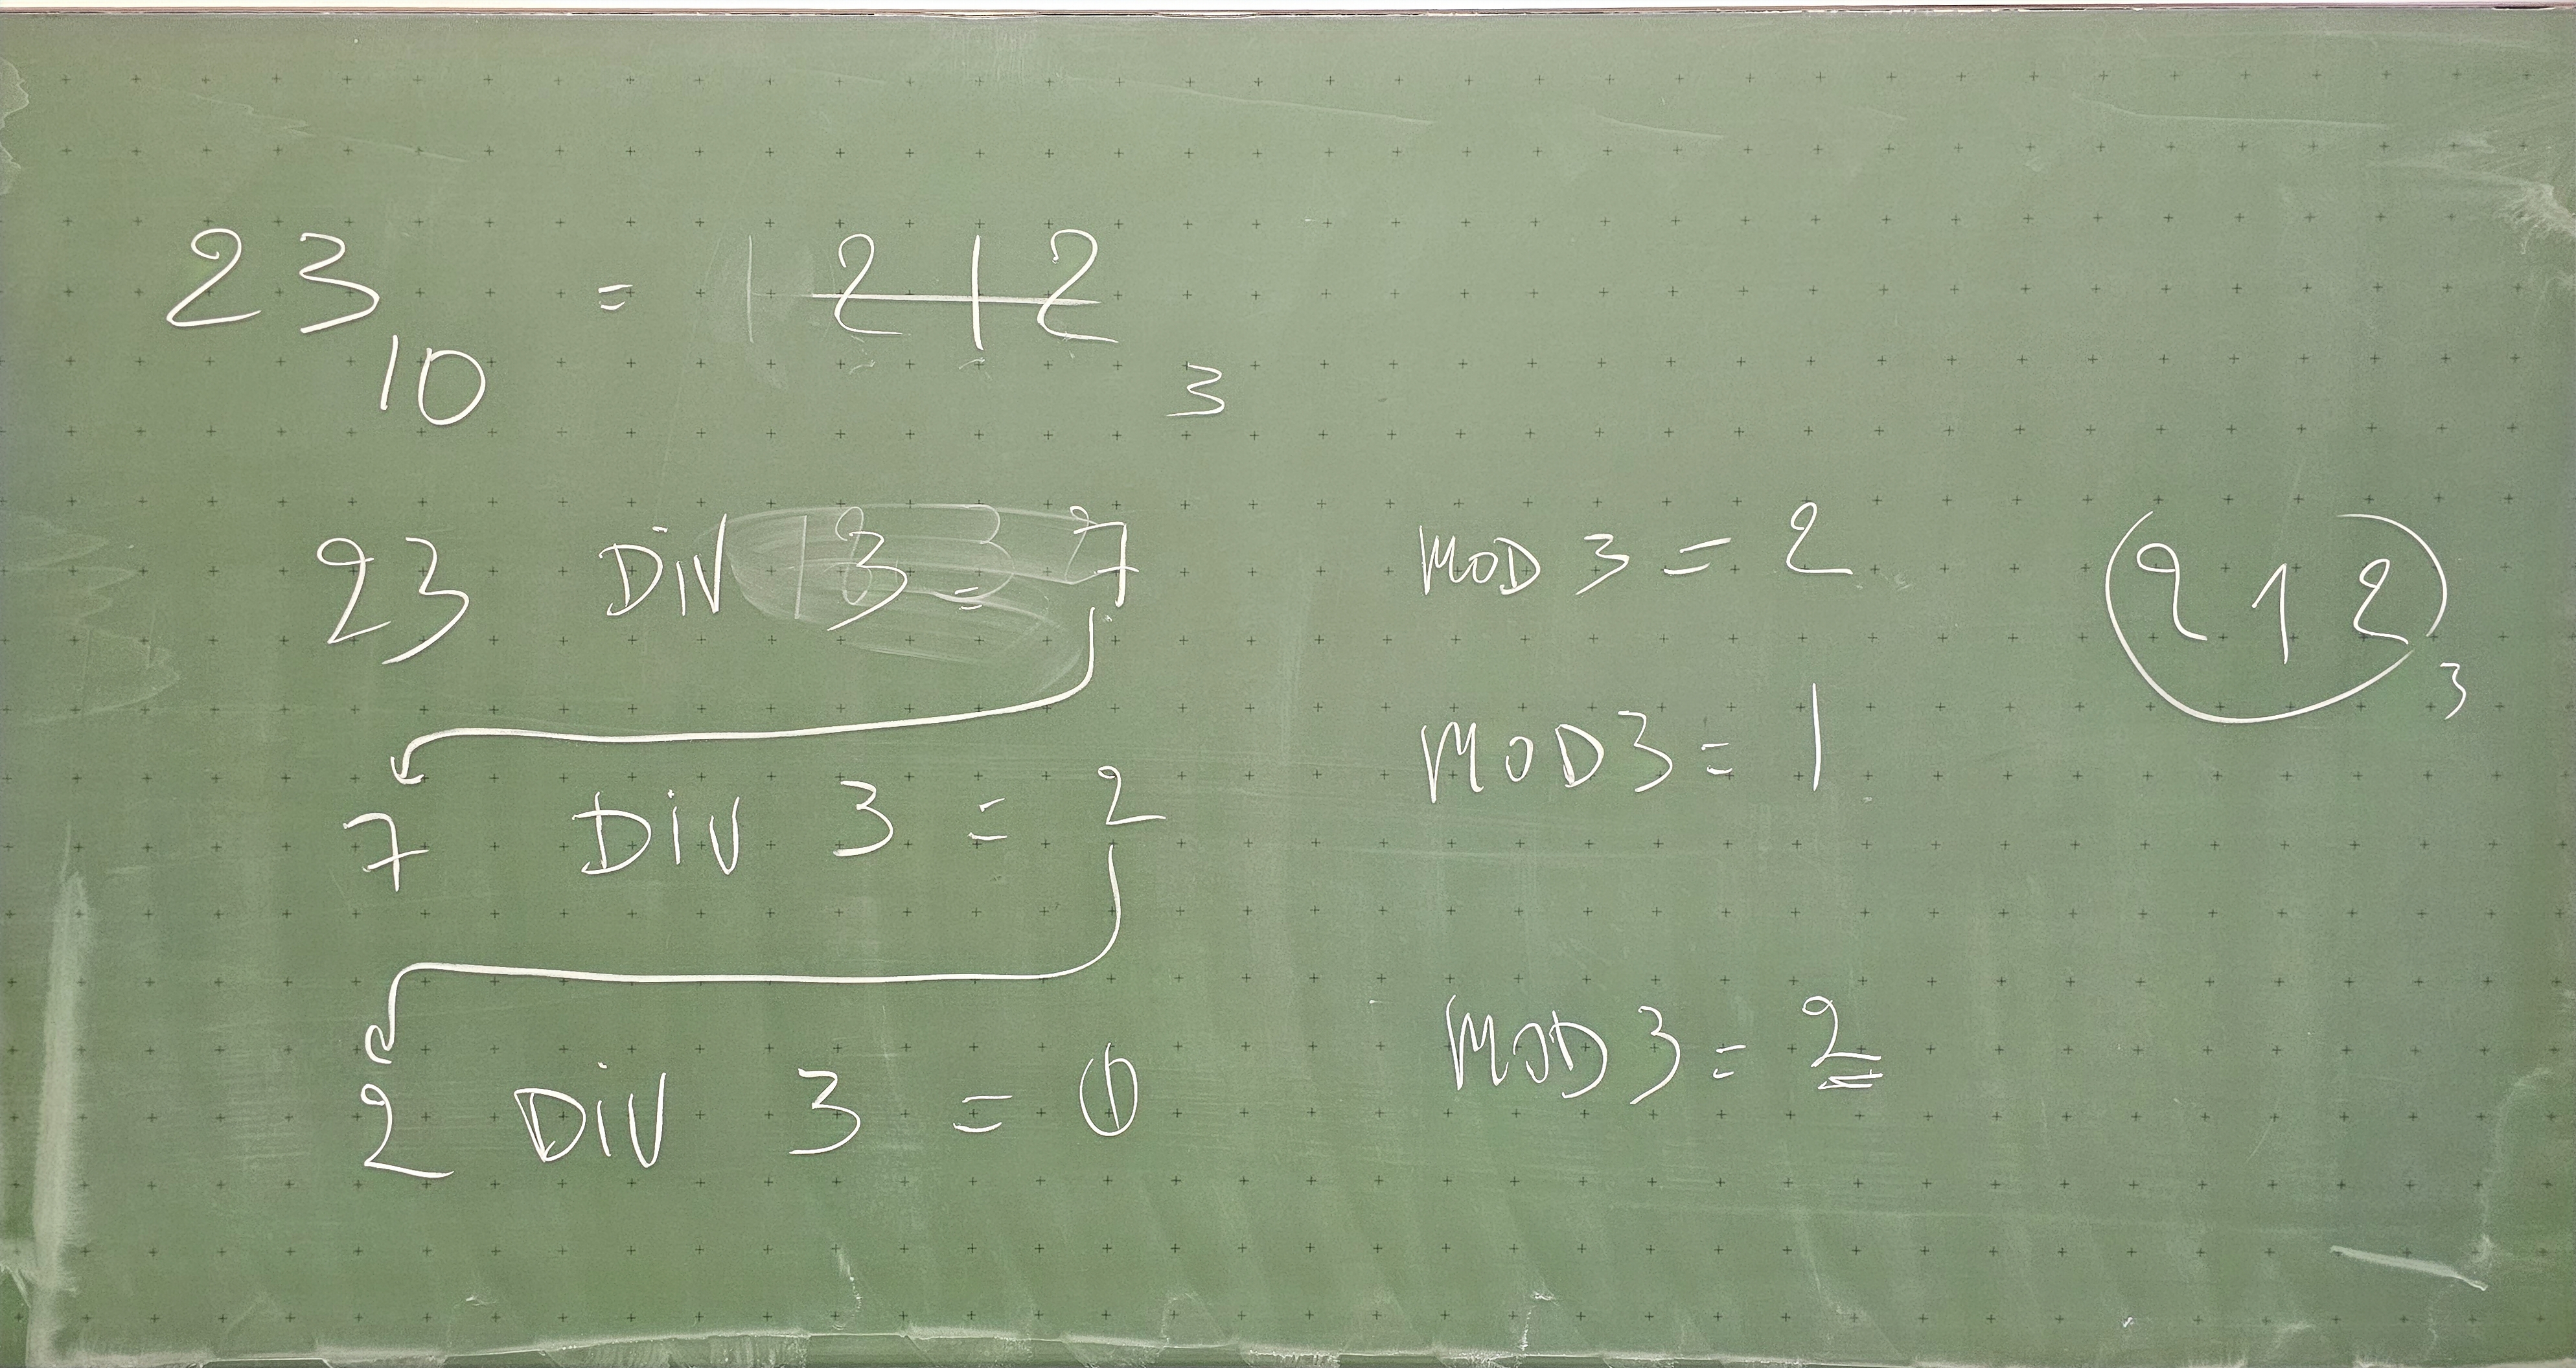 23₁₀ = 1212₃
23 DiV 3 = 7 MOD 3 = 2 212₃
7 DiV 3 = 2 MOD 3 = 1
2 DiV 3 = 0 MOD 3 = 2